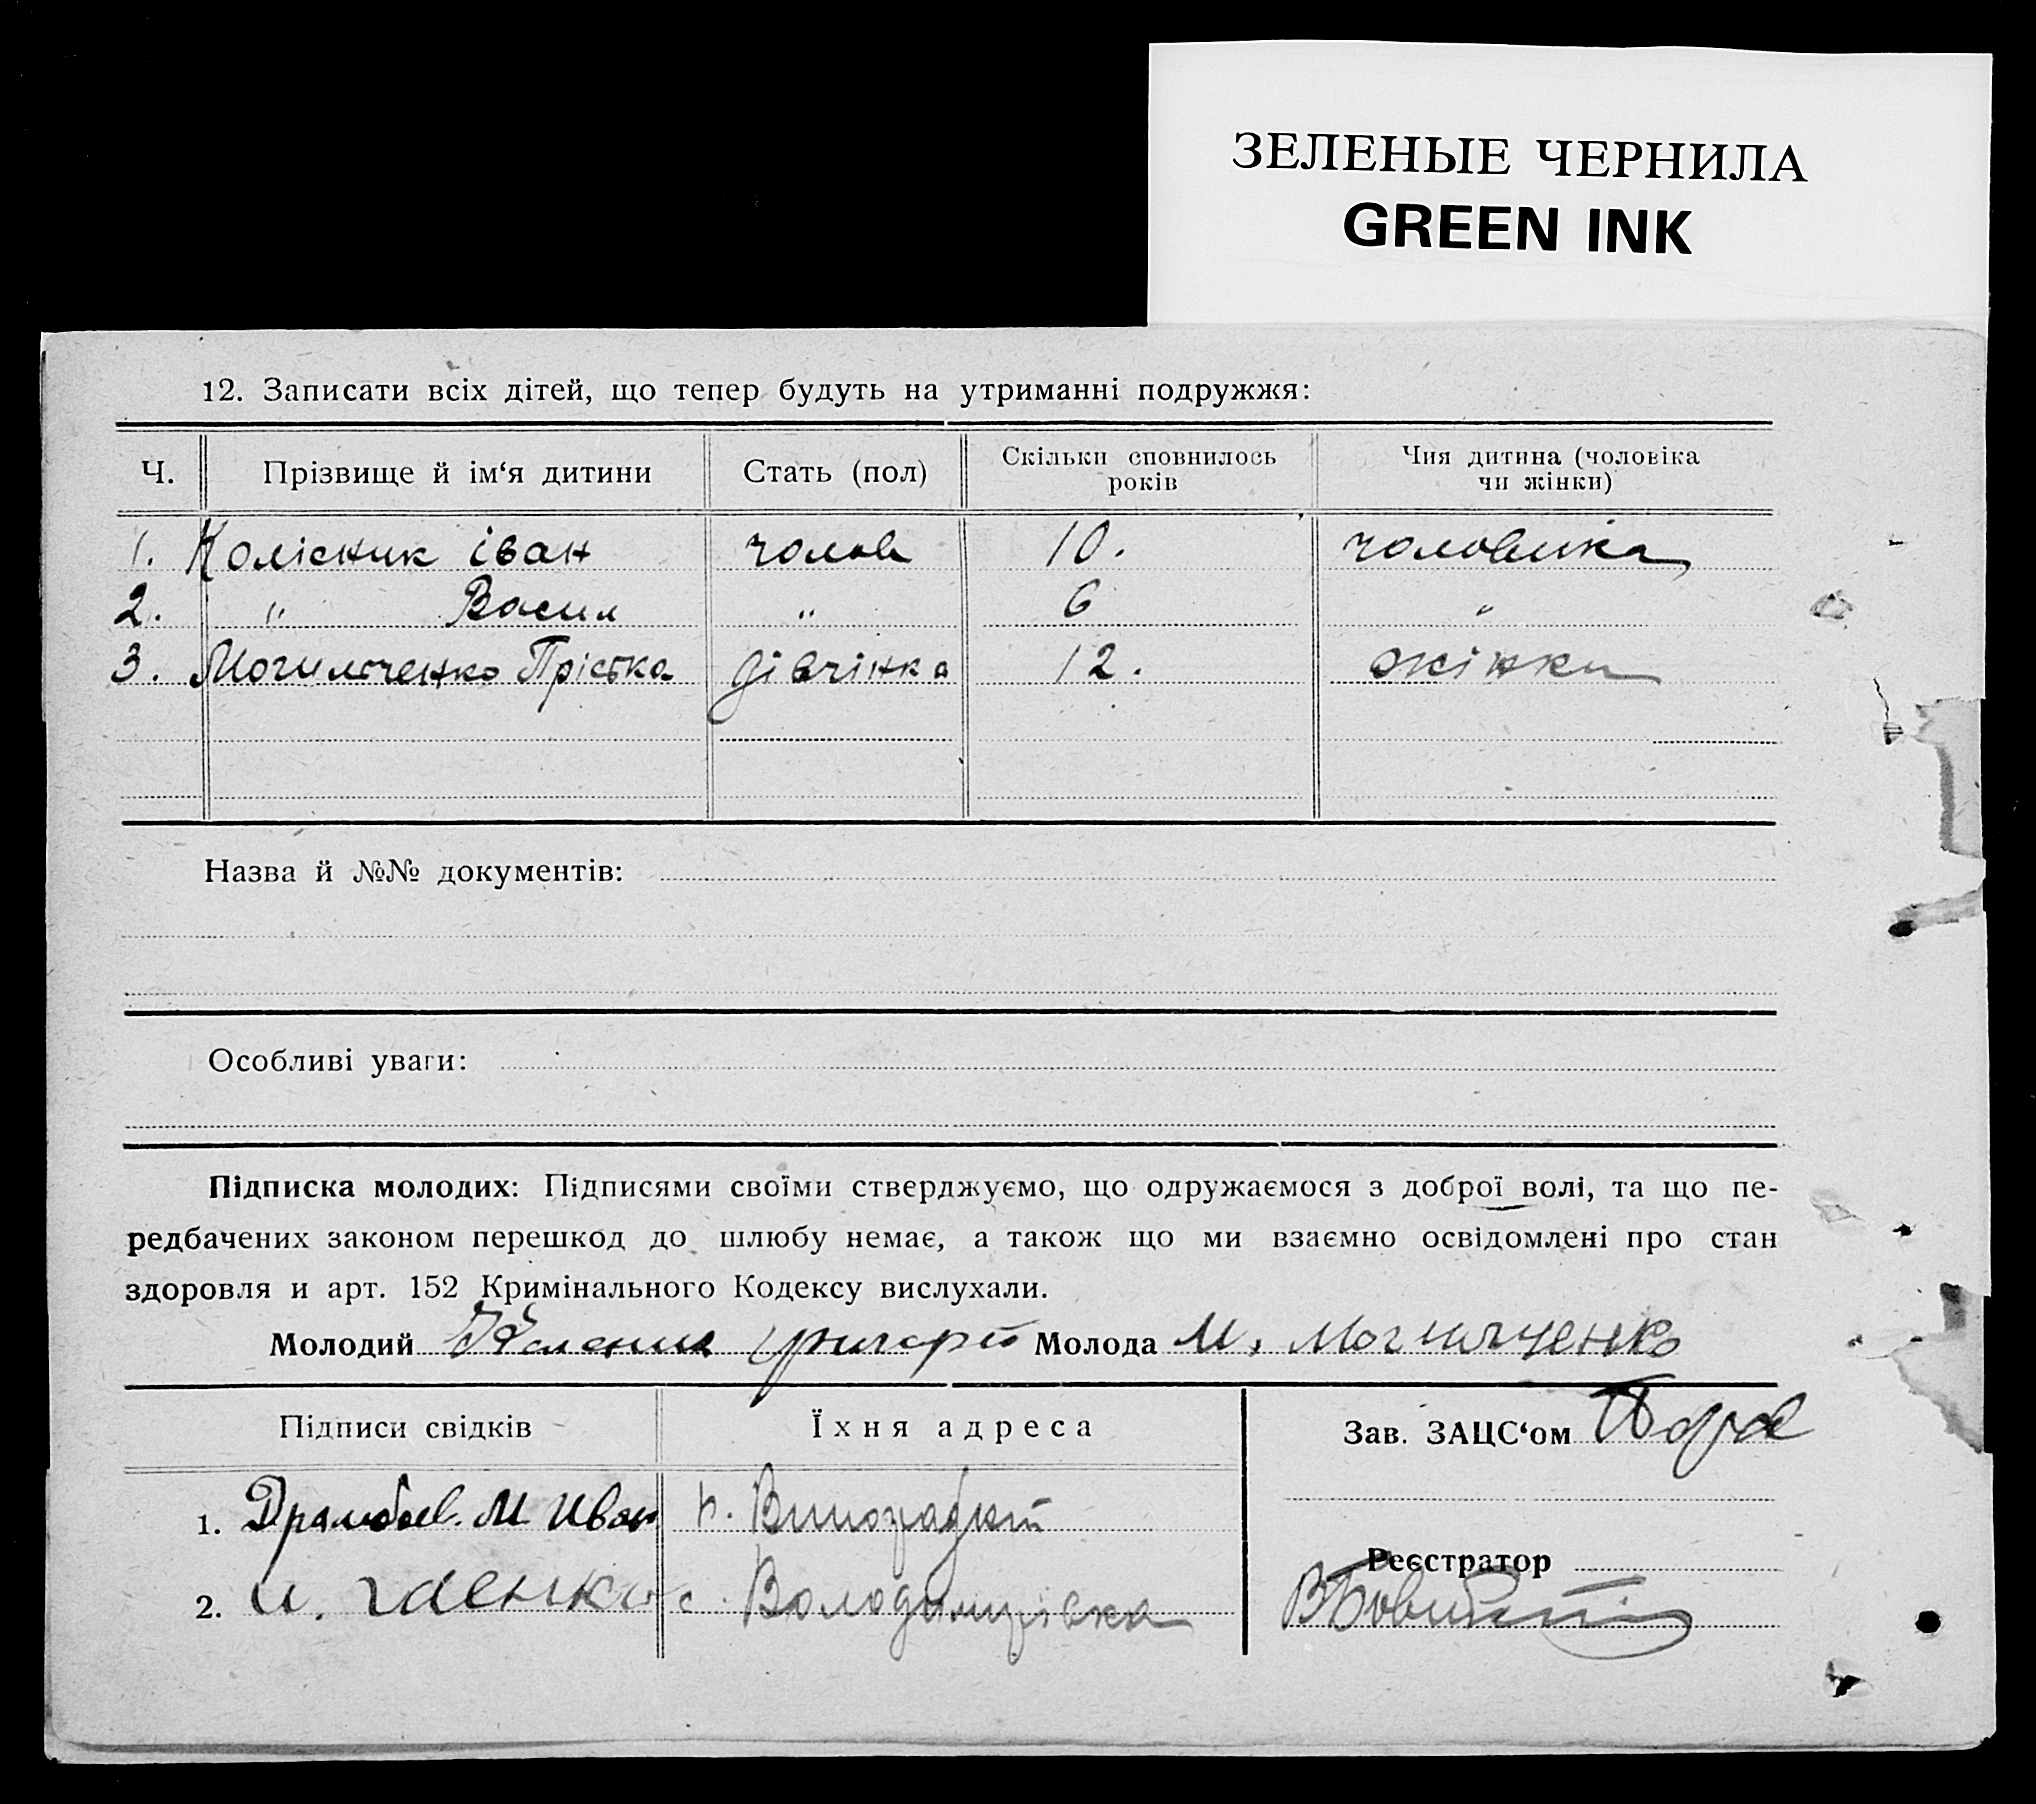 ЗЕЛЕНЫЕ ЧЕРНИЛА
GREEN INK
12. Записати всіх дітей, що тепер будуть на утриманні подружжя:
Ч. Прізвище й ім‘я дитини Стать (пол) Скільки сповнилось років Чия дитина (чоловіка чи жінки)
1. Колісник Іван чолов 10. чоловика
2. " Васил " 6 "
3. Могильченко Пріська дівчінка 12. жінки
Назва й №№ документів:
Особливі уваги:
Підписка молодих: Підписями своїми стверджуємо, що одружаємося з доброї волі, та що пе-
редбачених законом перешкод до шлюбу немає, а також що ми взаємно освідомлені про стан
здоровля и арт. 152 Кримінального Кодексу вислухали.
Молодий Молода М. Могилченко
Підписи свідків Їхня адреса Зав. ЗАЦС‘ом
1. М. Иван
Реєстратор
2. И. с. Володимирівка